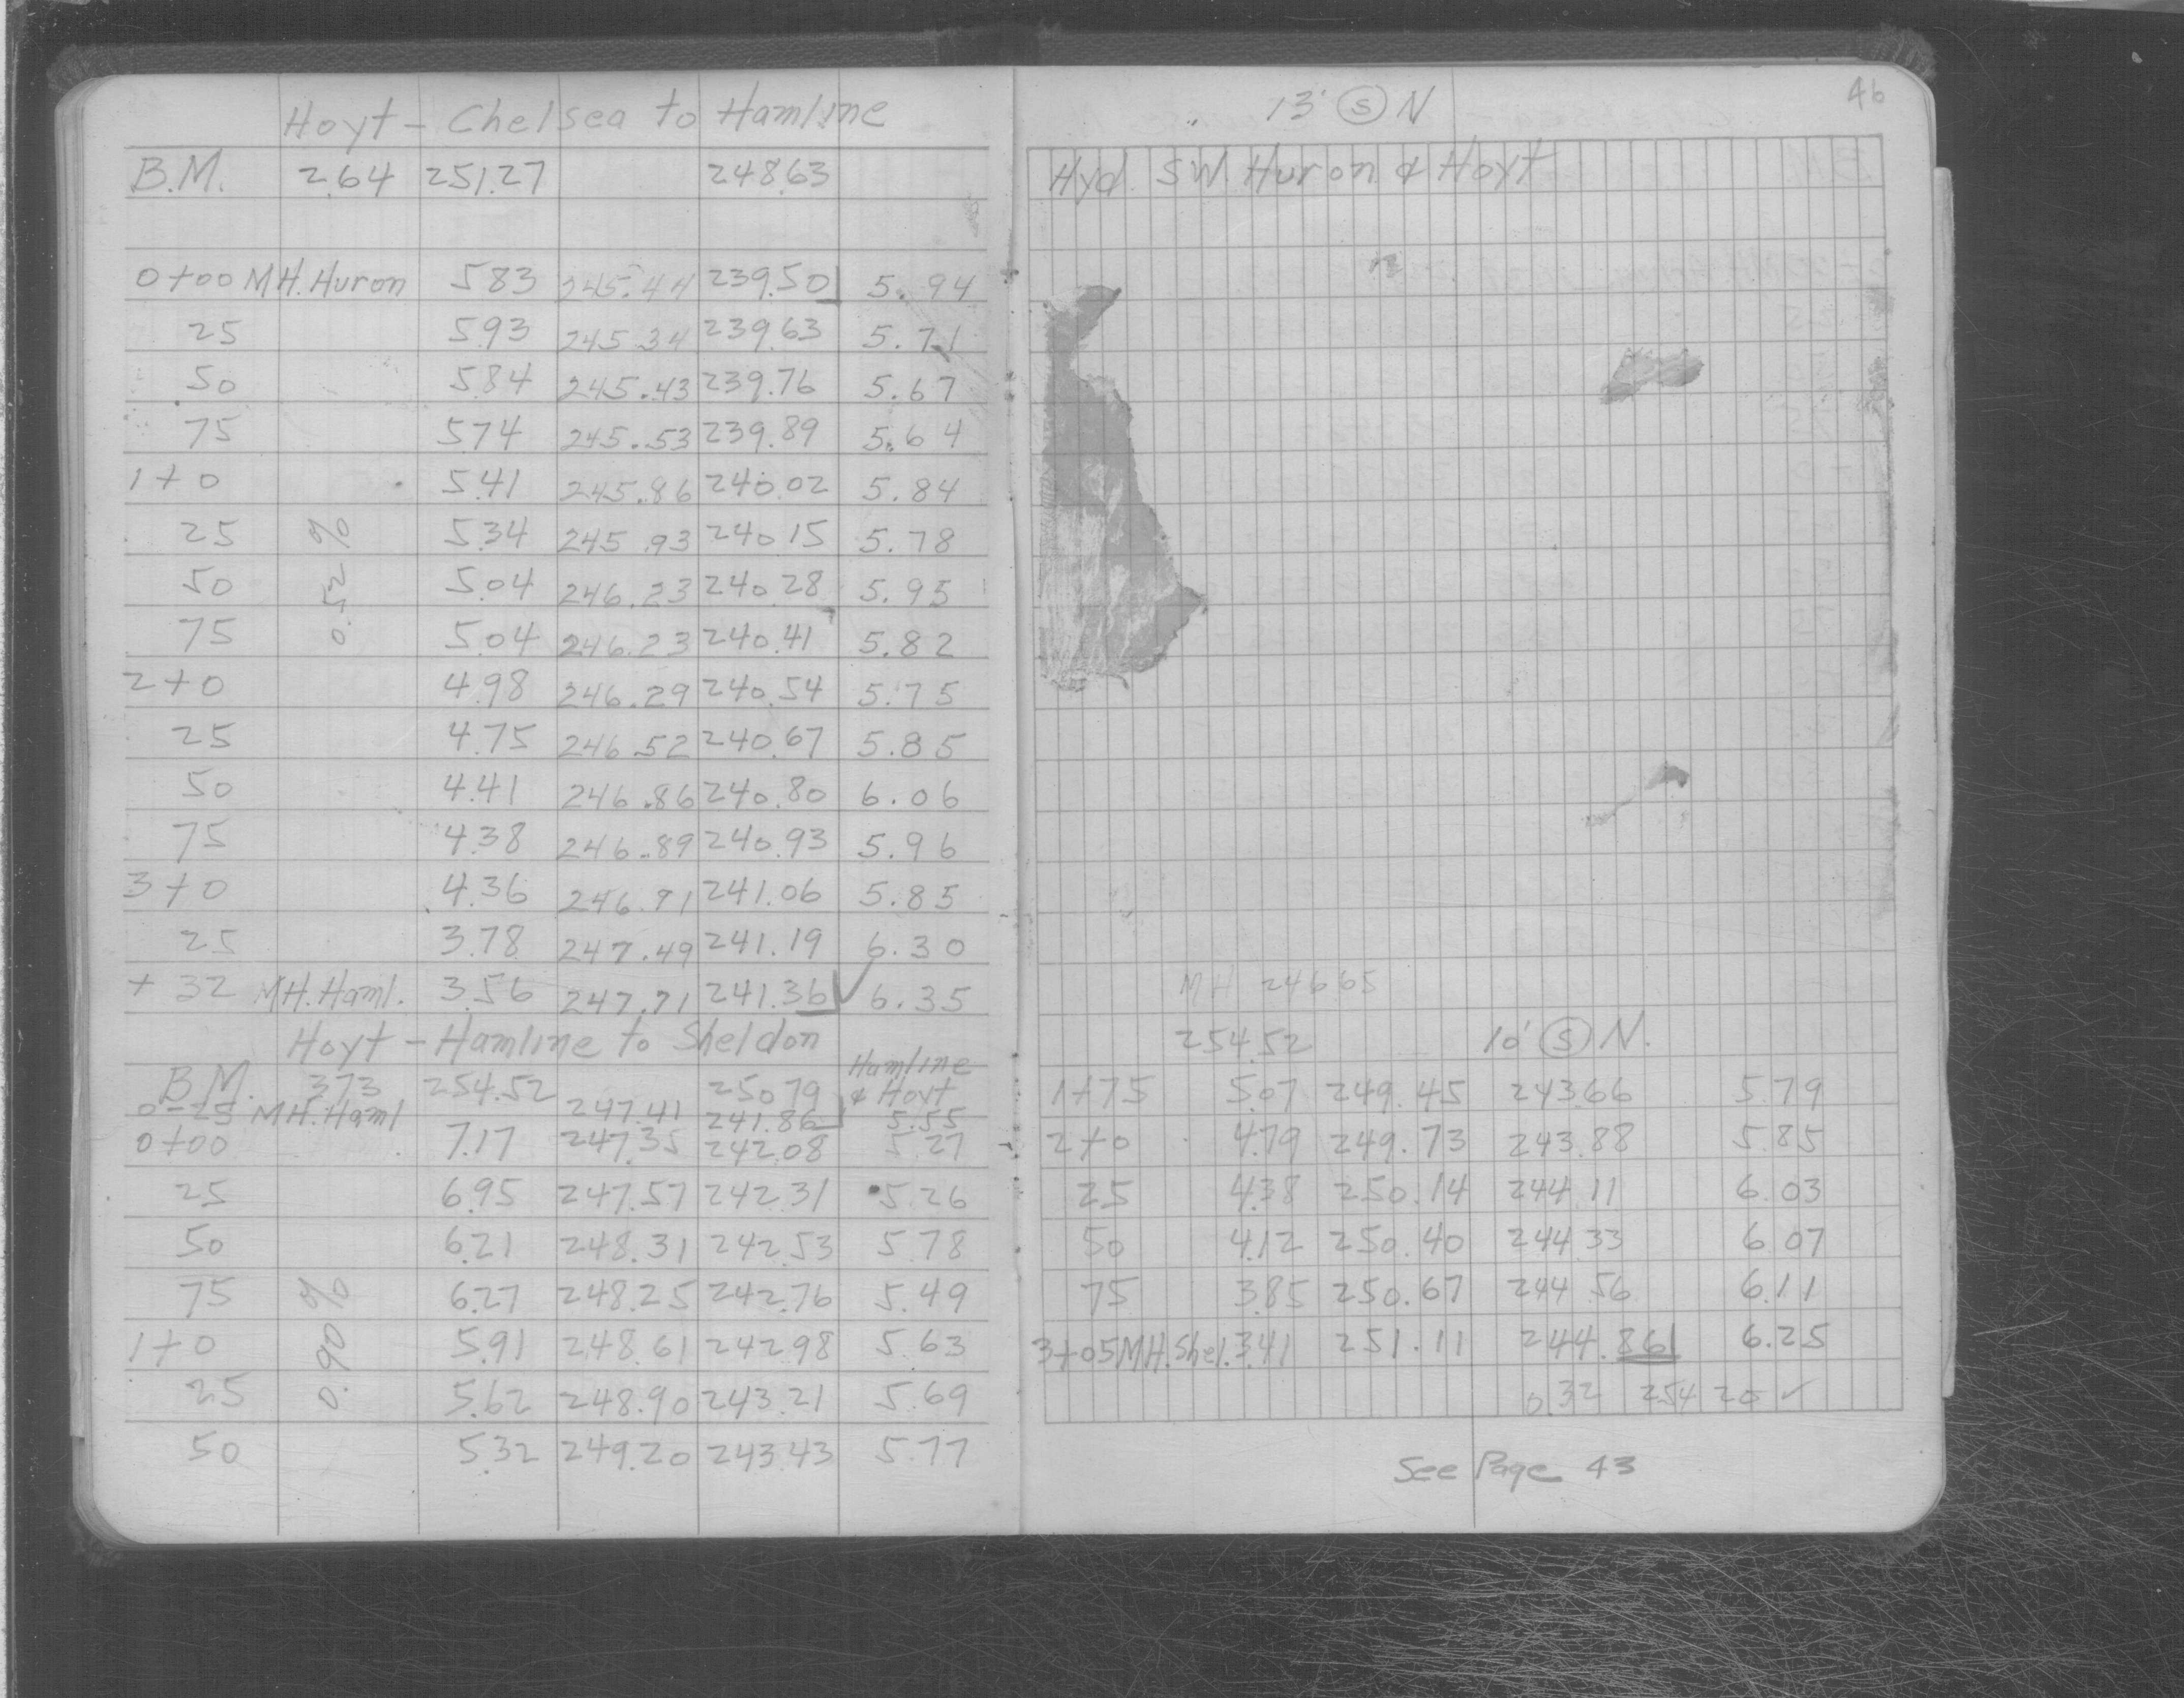 Hoyt - Chelsea to Hamline
B.M. 2.64 251.27 248.63
0+00 MH. Huron 5.83 245.44 239.50 5.94
25 5.93 245.34 239.63 5.71
50 5.84 245.43 239.76 5.67
75 5.74 245.53 239.89 5.64
1+0 5.41 245.86 240.02 5.84
25 5.34 245.93 240.15 5.78
50 5.04 246.23 240.28 5.95
75 5.04 246.23 240.41 5.82
0.52 %
2+0 4.98 246.29 240.54 5.75
25 4.75 246.52 240.67 5.85
50 4.41 246.86 240.80 6.06
75 4.38 246.89 240.93 5.96
3+0 4.36 246.91 241.06 5.85
25 3.78 247.49 241.19 6.30
+32 MH. Haml. 3.56 247.71 241.36 ✓ 6.35
Hoyt - Hamline to Sheldon
B.M. 3.73 254.52 250.79 Hamline & Hoyt
0-25 MH. Haml 247.41 241.86 5.55
0+00 7.17 247.35 242.08 5.27
25 6.95 247.57 242.31 5.26
50 6.21 248.31 242.53 5.78
75 6.27 248.25 242.76 5.49
1+0 5.91 248.61 242.98 5.63
0.90 %
25 5.62 248.90 243.21 5.69
50 5.32 249.20 243.43 5.77
46
13' Ⓢ N
Hyd. SW. Huron & Hoyt
MH 246.65
254.52 10' Ⓢ N.
1+75 5.07 249.45 243.66 5.79
2+0 4.79 249.73 243.88 5.85
25 4.38 250.14 244.11 6.03
50 4.12 250.40 244.33 6.07
75 3.85 250.67 244.56 6.11
3+05 MH. Shel. 3.41 251.11 244.86 6.25
0.32 254.20 ✓
See Page 43